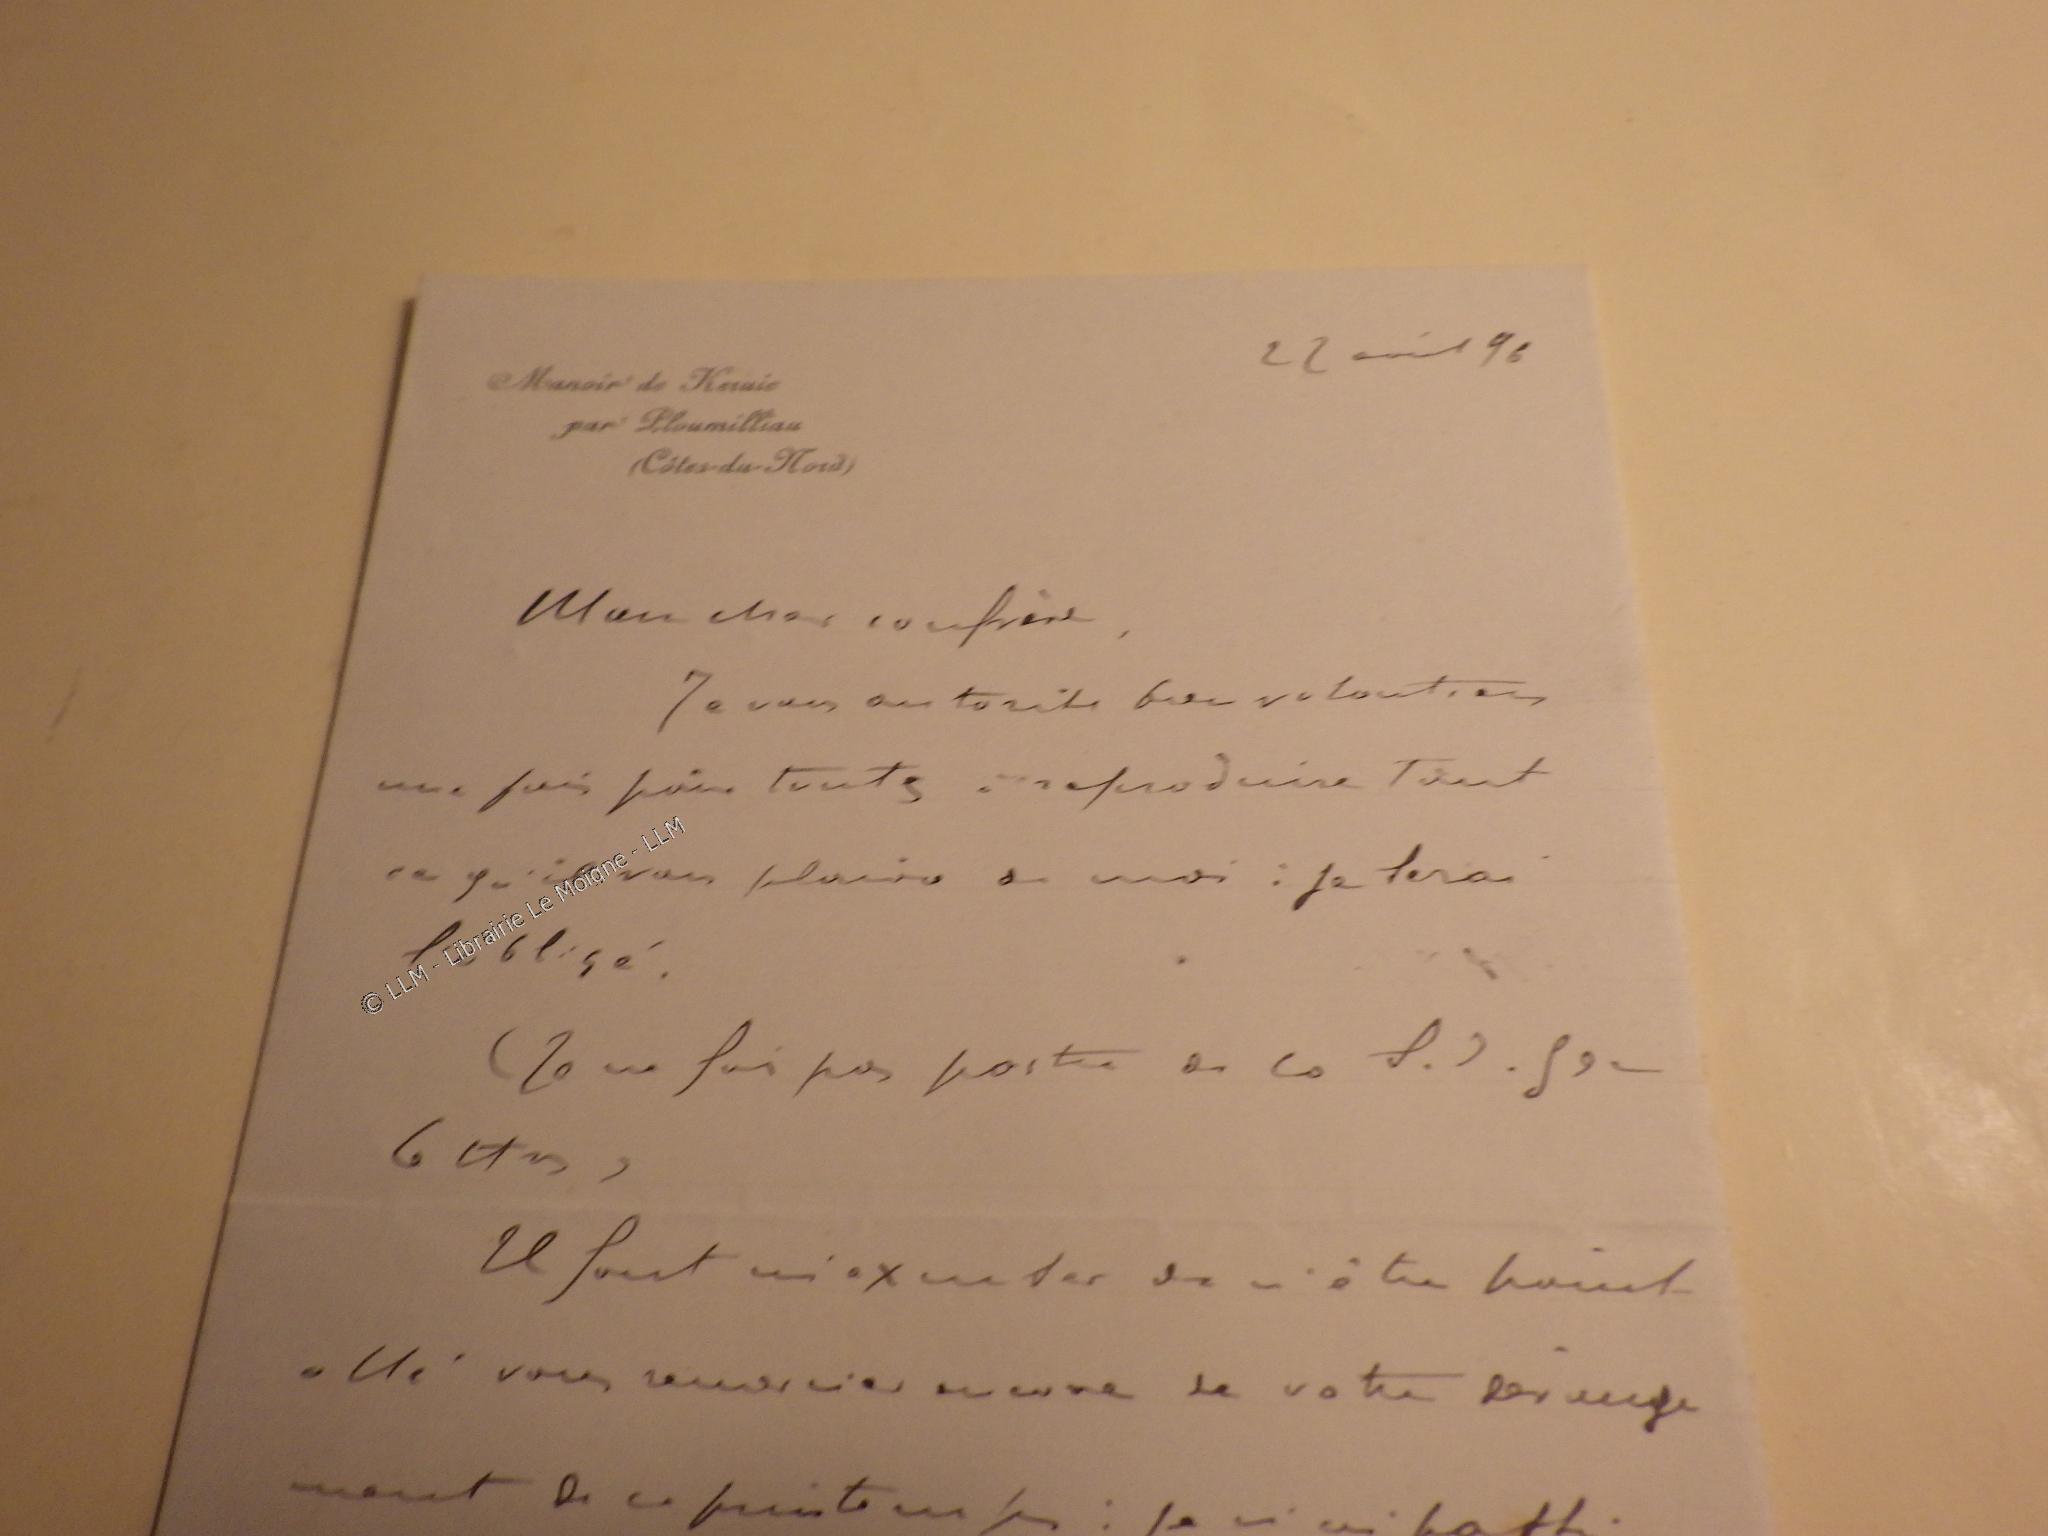 22 avril 96
Manoir de Keraic
par Ploumilliau
(Côtes-du-Nord)
Mon cher confrère,
Je vous autorise bien volontiers
une fois pour toutes à reproduire tout
ce qu'il vous plaira de moi : je serai
l'obligé.
(Je ne fais pas partie de la S. D. Gen
Lettres)
Il faut m'excuser de n'être point
allé vous remercier encore de votre dérange
ment de ce printemps : je
© LLM - Librairie Le Moigne - LLM